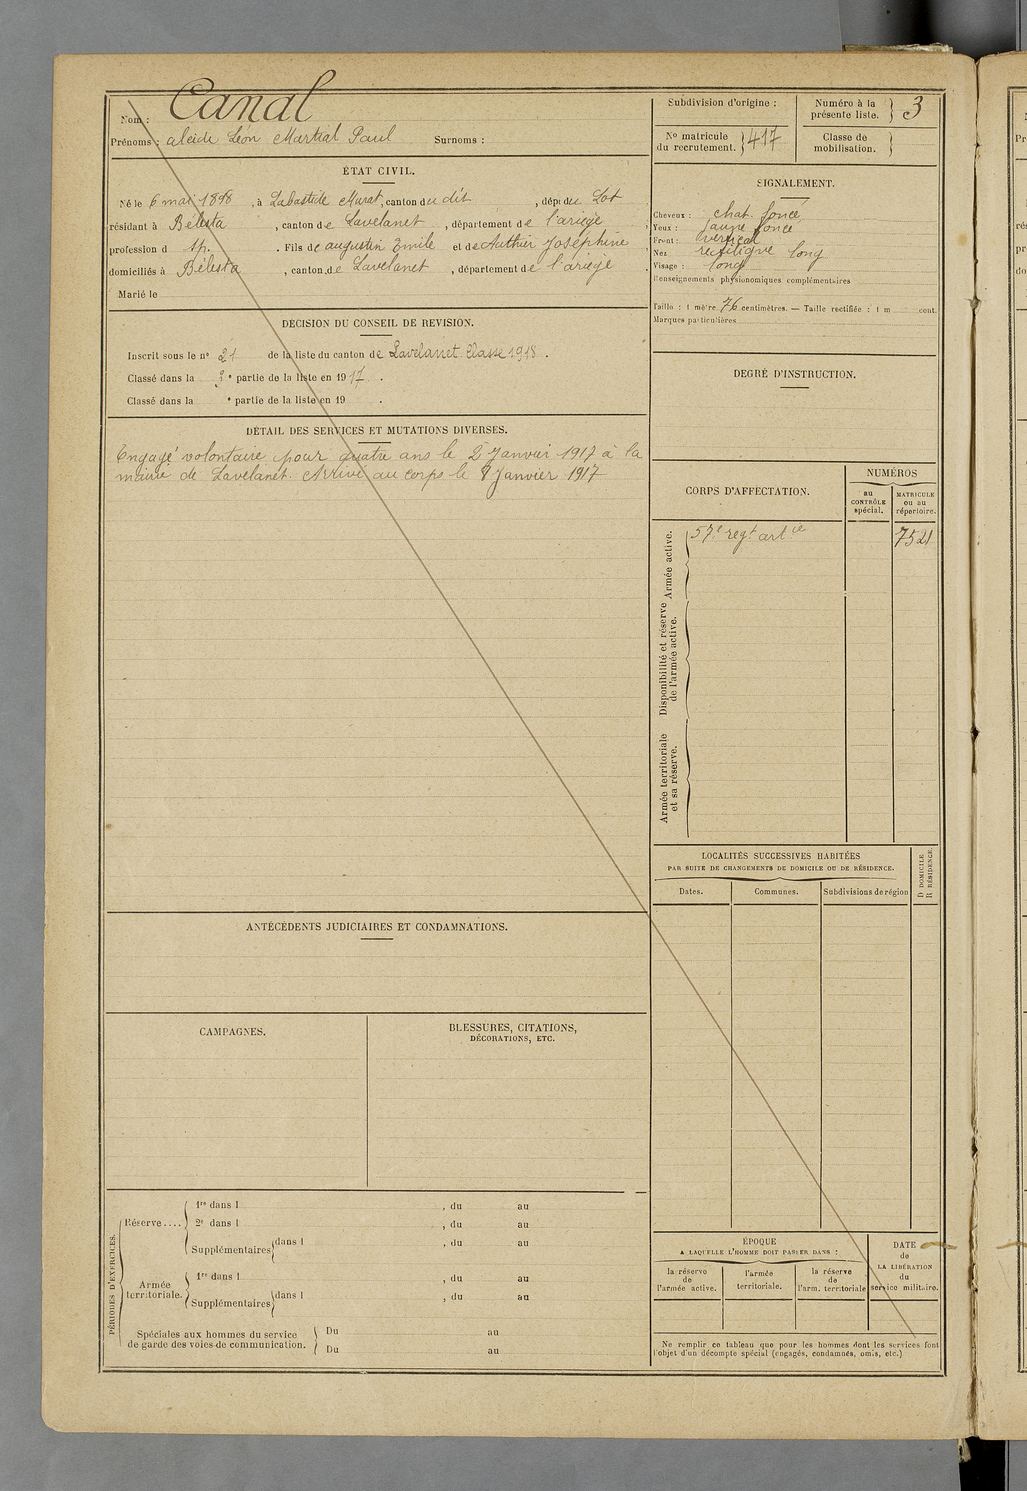 Nom : Canal
Prénoms : alcide Léon Martial Paul Surnoms :
ÉTAT CIVIL.
Né le 6 mai 1898, à Labastide Murat, canton du dit, dépt du Lot
résidant à Bélesta, canton de Lavelanet, département de l'ariège
profession d sp. Fils de augustin Emile et de Authier Joséphine
domiciliés à Bélesta, canton de Lavelanet, département de l'ariège
Marié le
DÉCISION DU CONSEIL DE REVISION.
Inscrit sous le n° 21 de la liste du canton de Lavelanet Classe 1918.
Classé dans la 3e partie de la liste en 1917.
Classé dans la e partie de la liste en 19 .
DÉTAIL DES SERVICES ET MUTATIONS DIVERSES.
Engagé volontaire pour quatre ans le 2 Janvier 1917 à la
mairie de Lavelanet. Arrivé au corps le 8 Janvier 1917
ANTÉCÉDENTS JUDICIAIRES ET CONDAMNATIONS.
CAMPAGNES.
BLESSURES, CITATIONS,
DÉCORATIONS, ETC.
PÉRIODES D'EXERCICES.
Réserve....
1re dans l , du au
2e dans l , du au
Supplémentaires dans l , du au
Armée
territoriale.
1re dans l , du au
Supplémentaires dans l , du au
Spéciales aux hommes du service
de garde des voies de communication.
Du au
Du au
Subdivision d'origine :
Numéro à la
présente liste. 3
N° matricule
du recrutement. 417
Classe de
mobilisation.
SIGNALEMENT.
Cheveux : chat. foncé
Yeux : jaune foncé
Front : vertical
Nez rectiligne long
Visage : long
Renseignements physionomiques complémentaires
Taille : 1 mètre 76 centimètres. — Taille rectifiée : 1 m cent.
Marques particulières
DEGRÉ D'INSTRUCTION.
CORPS D'AFFECTATION.
NUMÉROS
au
CONTRÔLE
spécial.
MATRICULE
ou au
répertoire.
Armée active.
57e regt artie 7521
Disponibilité et réserve
de l'armée active.
Armée territoriale
et sa réserve.
LOCALITÉS SUCCESSIVES HABITÉES
PAR SUITE DE CHANGEMENTS DE DOMICILE OU DE RÉSIDENCE.
D DOMICILE
R RÉSIDENCE.
Dates. Communes. Subdivisions de région
ÉPOQUE
A LAQUELLE L'HOMME DOIT PASSER DANS :
la réserve
de
l'armée active.
l'armée
territoriale.
la réserve
de
l'arm. territoriale
DATE
de
LA LIBÉRATION
du
service militaire.
Ne remplir ce tableau que pour les hommes dont les services font
l'objet d'un décompte spécial (engagés, condamnés, omis, etc.)